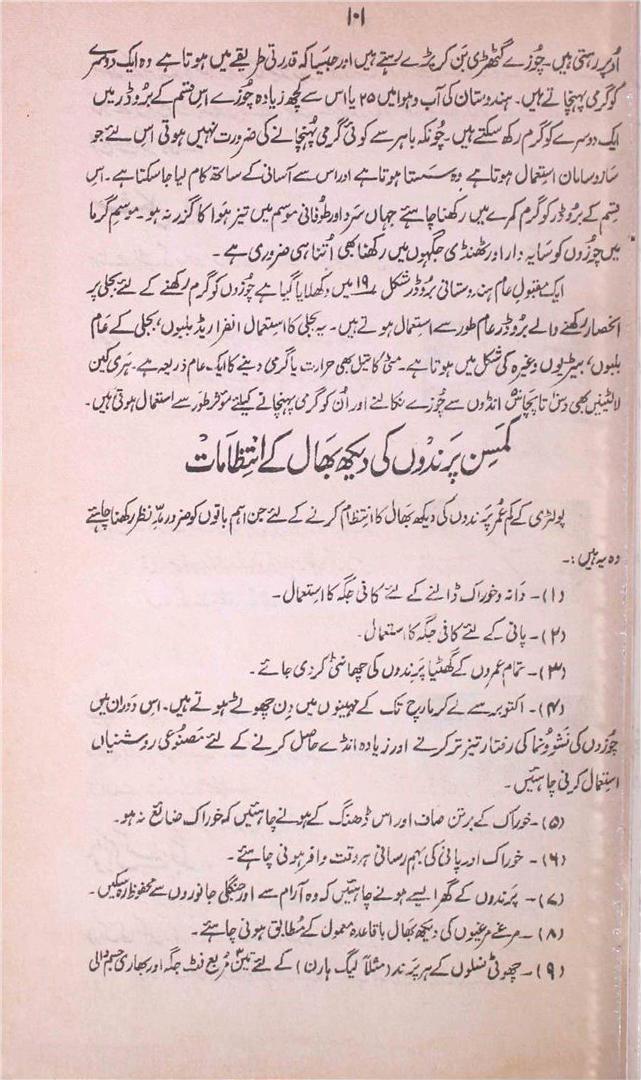 ۱۰۱
اُوپر رہتی ہیں۔ چُوزے گٹھڑی بن کر پڑے رہتے ہیں اور جیسا کہ قدرتی طریقے میں ہوتا ہے وہ ایک دوسرے
کو گرمی پہنچاتے ہیں۔ ہندوستان کی آب و ہوا میں ۲۵ یا اس سے کچھ زیادہ چُوزے اس قسم کے بروڈر میں
ایک دوسرے کو گرم رکھ سکتے ہیں۔ چُونکہ باہر سے کوئی گرمی پُہنچانے کی ضرورت نہیں ہوتی اس لئے جو
سازو سامان استعمال ہوتا ہے وہ سستا ہوتا ہے اور اس سے آسانی کے ساتھ کام لیا جا سکتا ہے۔ اس
قِسم کے بروڈر کو گرم کمرے میں رکھنا چاہئے جہاں سَرد اور طُوفانی موسم میں تیز ہوا کا گزر نہ ہو۔ موسمِ گرما
میں چُوزوں کو سایہ دار اور ٹھنڈی جگہوں میں رکھنا بھی اُتنا ہی ضروری ہے ۔
ایک مقبولِ عام ہندوستانی بروڈر شکل ۱۹ میں دکھلایا گیا ہے چُوزوں کو گرم رکھنے کے لئے بجلی پر
انحصار رکھنے والے بروڈر عام طور سے استعمال ہوتے ہیں۔ یہ بجلی کا استعمال انفرا ریڈ بلبوں، بجلی کے عام
بلبوں، بیٹریوں وغیرہ کی شکل میں ہوتا ہے۔ مٹی کا تیل بھی حرارت یا گرمی دینے کا ایک عام ذریعہ ہے۔ ہری کین
لالٹینیں بھی دس تا پچاس انڈوں سے چُوزے نکالنے اور اُن کو گرمی پہنچانے کیلئے مؤثر طور سے استعمال ہوتی ہیں۔
کمسِن پرندوں کی دیکھ بھال کے انتظامات
پولٹری کے کم عُمر پرندوں کی دیکھ بھال کا انتظام کرنے کے لئے جن اہم باتوں کو ضرور مدِّ نظر رکھنا چاہئے
وہ یہ ہیں :۔
(۱)۔ دَانہ و خوراک ڈالنے کے لئے کافی جگہ کا استعمال۔
(۲)۔ پانی کے لئے کافی جگہ کا استعمال۔
(۳)۔ تمام عمروں کے گھٹیا پرندوں کی چھانٹی کر دی جائے۔
(۴)۔ اکتوبر سے لے کر مارچ تک کے مہینوں میں دِن چھوٹے ہوتے ہیں۔ اس دَوران میں
چُوزوں کی نَشوونُما کی رفتار تیز تر کرنے اور زیادہ انڈے حاصل کرنے کے لئے مَصنُوعی روشنیاں
استعمال کرنی چاہئیں۔
(۵)۔ خوراک کے برتن صاف اور اس ڈھنگ کے ہونے چاہئیں کہ خوراک ضائع نہ ہو۔
(۶)۔ خوراک اور پانی کی بہم رسانی ہر وقت وافر ہونی چاہئے۔
(۷)۔ پرندوں کے گھر ایسے ہونے چاہئیں کہ وہ آرام سے اور جنگلی جانوروں سے محفوظ رہ سکیں۔
(۸)۔ مرغے مرغیوں کی دیکھ بھال باقاعدہ معمول کے مُطابق ہونی چاہئے۔
(۹)۔ چھوٹی نسلوں کے ہر پرند (مثلاً لیگ ہارن) کے لئے تین مُربع فٹ جگہ اور بھاری جسم والی